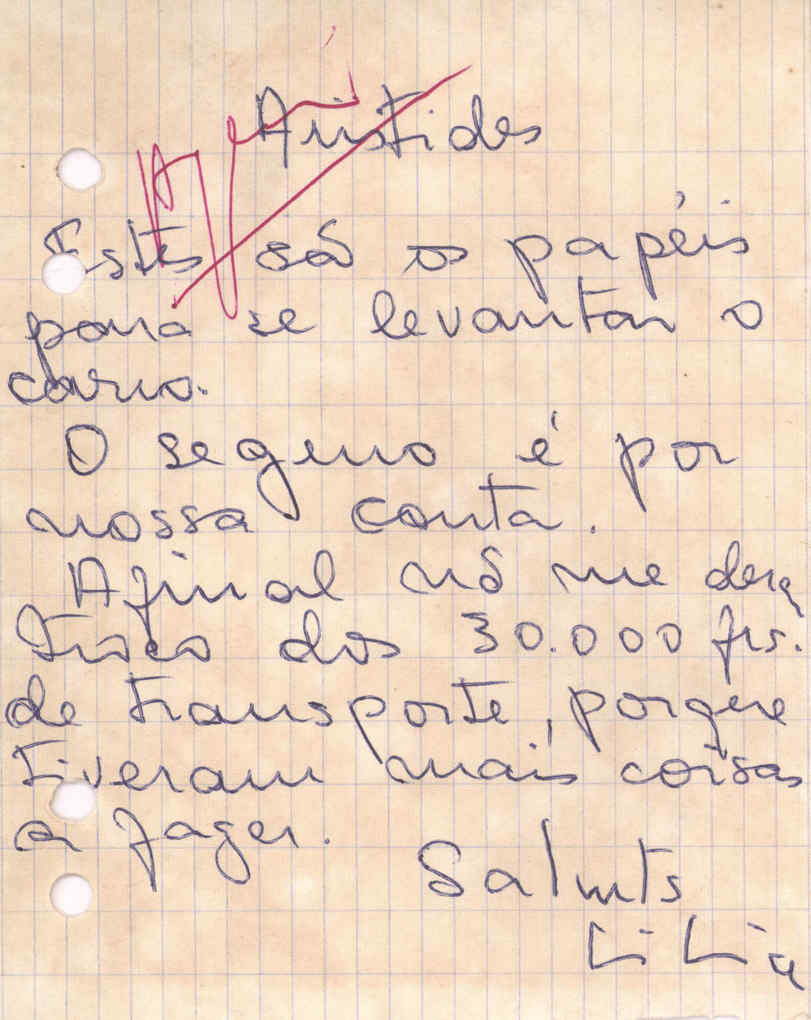 Aristides
Estes são os papéis
para se levantar o
carro.
O seguro é por
nossa conta.
Afinal nõ me dera
troco dos 30.000 frs.
de transporte, porque
tiveram mais coisas
a fazer.
Saluts
Lilia